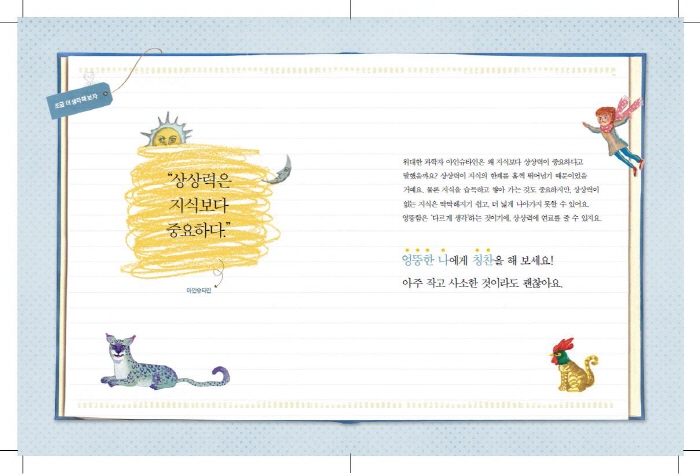 조금 더 생각해 보자
“상상력은
지식보다
중요하다.”
아인슈타인
위대한 과학자 아인슈타인은 왜 지식보다 상상력이 중요하다고
말했을까요? 상상력이 지식의 한계를 훌쩍 뛰어넘기 때문이었을
거예요. 물론 지식을 습득하고 쌓아 가는 것도 중요하지만, 상상력이
없는 지식은 딱딱해지기 쉽고, 더 넓게 나아가지 못할 수 있어요.
엉뚱함은 ‘다르게 생각’하는 것이기에, 상상력에 연료를 줄 수 있지요.
엉뚱한 나에게 칭찬을 해 보세요!
아주 작고 사소한 것이라도 괜찮아요.